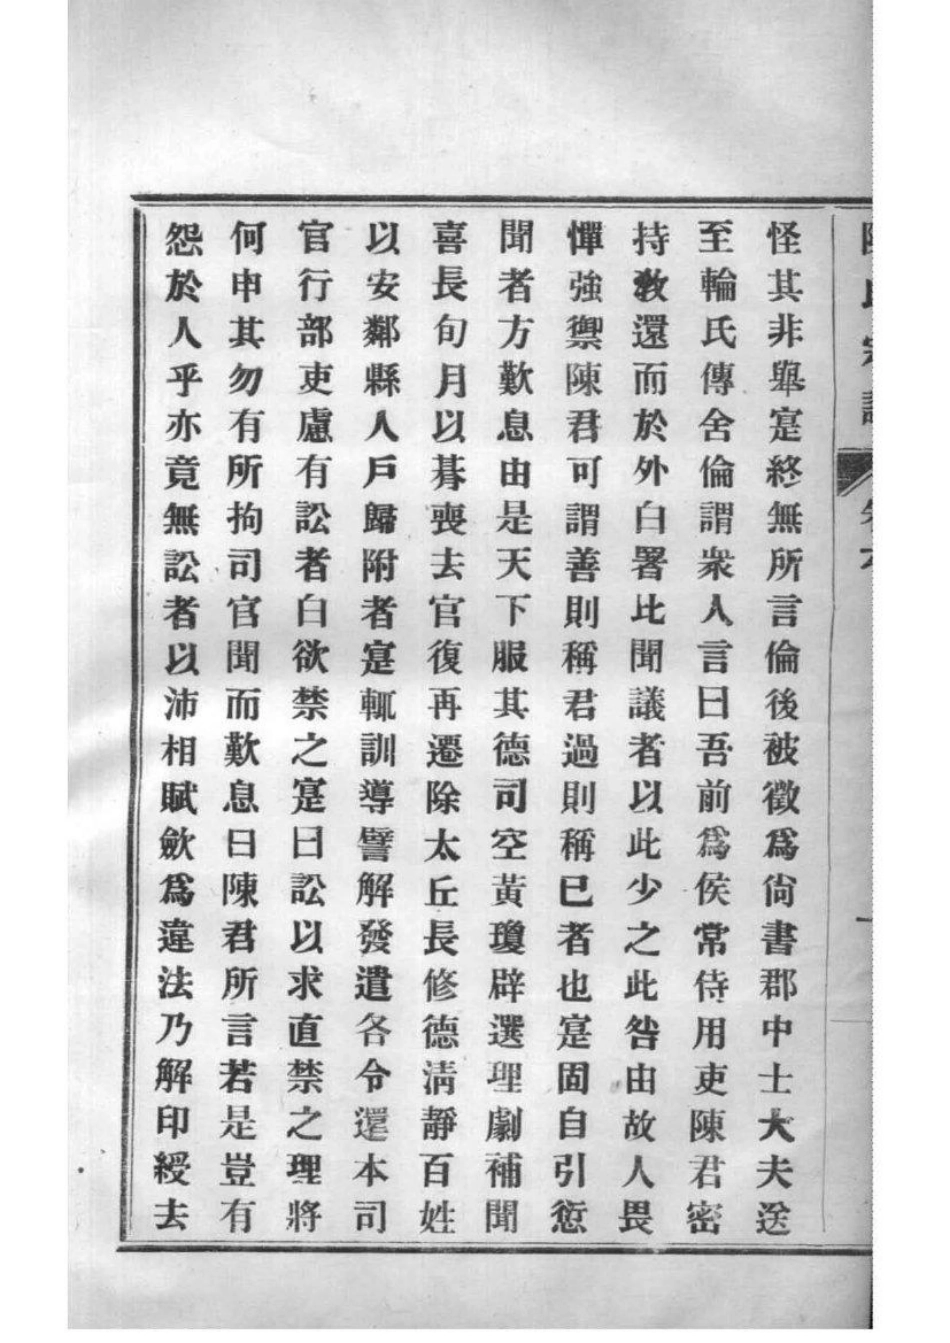 怪其非舉寔終無所言倫後被徵爲尙書郡中士大夫送
至輪氏傳舍倫謂衆人言曰吾前爲侯常侍用吏陳君密
持教還而於外白署比聞議者以此少之此咎由故人畏
憚強禦陳君可謂善則稱君過則稱已者也寔固自引愆
聞者方歎息由是天下服其德司空黃瓊辟選理劇補聞
喜長旬月以朞喪去官復再遷除太丘長修德淸靜百姓
以安鄰縣人戶歸附者寔輒訓導譬解發遣各令還本司
官行部吏慮有訟者白欲禁之寔曰訟以求直禁之理將
何申其勿有所拘司官聞而歎息曰陳君所言若是豈有
怨於人乎亦竟無訟者以沛相賦斂爲違法乃解印綬去